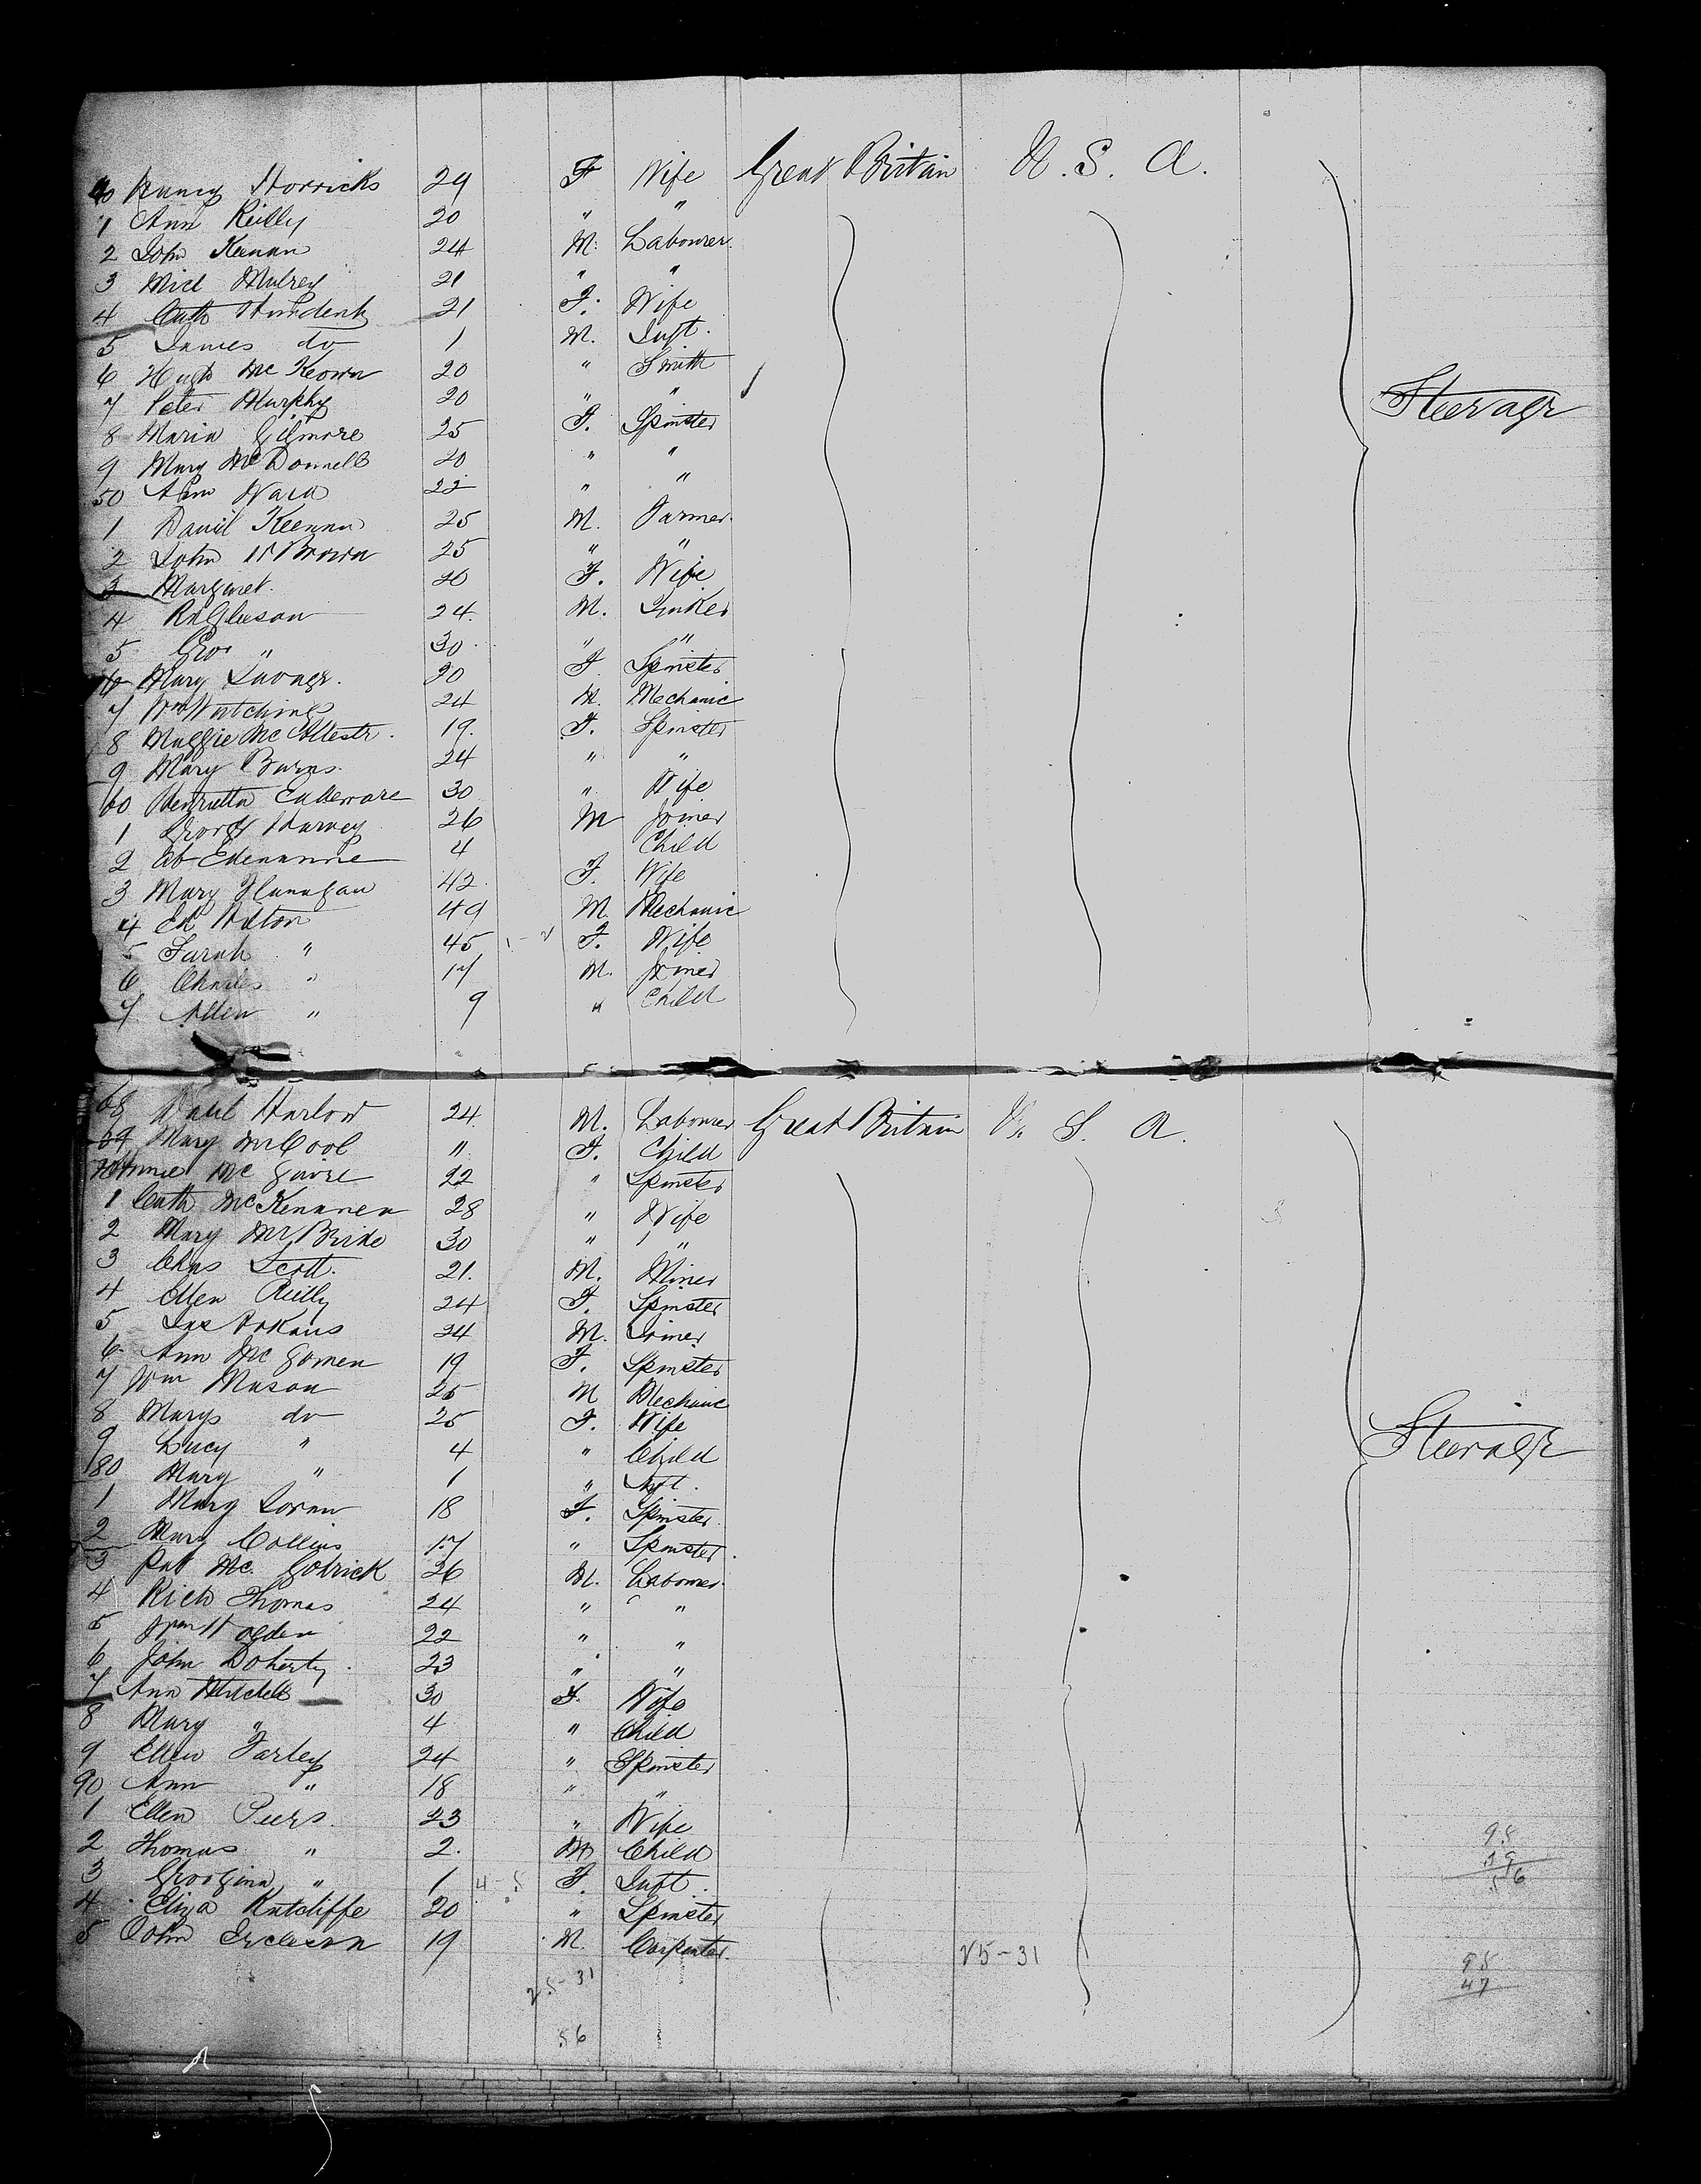 40 Nancy Horricks 29 F Wife Great Britain U. S. A.
1 Ann Reilly 20 " "
2 John Keenan 24 M. Labourer
3 Mich Mulrey 21 " "
4 Cath 21 F. Wife
5 James do 1 M. Inft.
6 Hugh McKeown 20 " Smith
7 Peter Murphy 20 " "
Steerage
8 Maria Gilmore 25 F. Spinster
9 Mary McDonnell 20 " "
50 Ann Ward 22 " "
1 David Keenan 25 M. Farmer
2 John Brown 25 " "
3 Margaret 26 F. Wife
4 Gleeson 24. M.
5 Geo " 30 " "
6 Mary Savage. 20 F Spinster
7 Wm 24 M. Mechanic
8 Maggie Mc 19. F. Spinster
9 Mary Burns 24 " "
60 Henrietta 30 " Wife
1 George Harvey 26 M Joiner
2 4 Child
3 Mary Flanagan 42 F. Wife
4 Ed Hilton 49 M. Mechanic
5 Sarah " 45 F. Wife
6 Charles " 17 M. Joiner
7 Allen " 9 " Child
68 Harlow 24 M. Labourer Great Britain U. S. A.
69 Mary McCool " F. Child
70 Annie McGuire 22 " Spinster
1 Cath 28 " Wife
2 Mary McBride 30 " "
3 Chas Scott. 21. M. Miner
4 Ellen Reilly 24 F. Spinster
5 Jas 24 M. Joiner
6 Ann Mc 19 F. Spinster
7 Wm Mason 25 M Mechanic
8 Mary do 25 F. Wife
9 Lucy " 4 " Child
Steerage
180 Mary " 1 " Inft.
1 Mary 18 F. Spinster
2 Mary Collins 17 " Spinster
3 Pat Mc. 26 M. Labourer
4 Rich Thomas 24 " "
5 Wm Hogden 22 " "
6 John Doherty 23 " "
7 Ann Mitchell 30 F. Wife
8 Mary " 4 " Child
9 Ellen Farley 24 " Spinster
90 Ann " 18 " "
1 Ellen Peers 23 " Wife
2 Thomas " 2. M Child
3 Georgina " 1 F. Inft.
4 Eliza Ratcliffe 20 " Spinster
5 John 19 M. Carpenter.
25-31
25-31
56